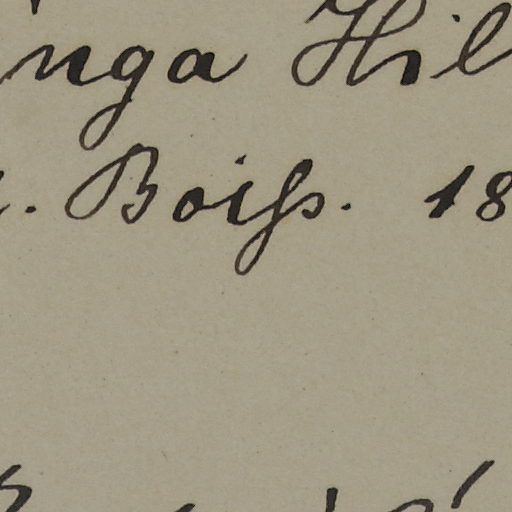 nga Hil
. Boiſs. 18